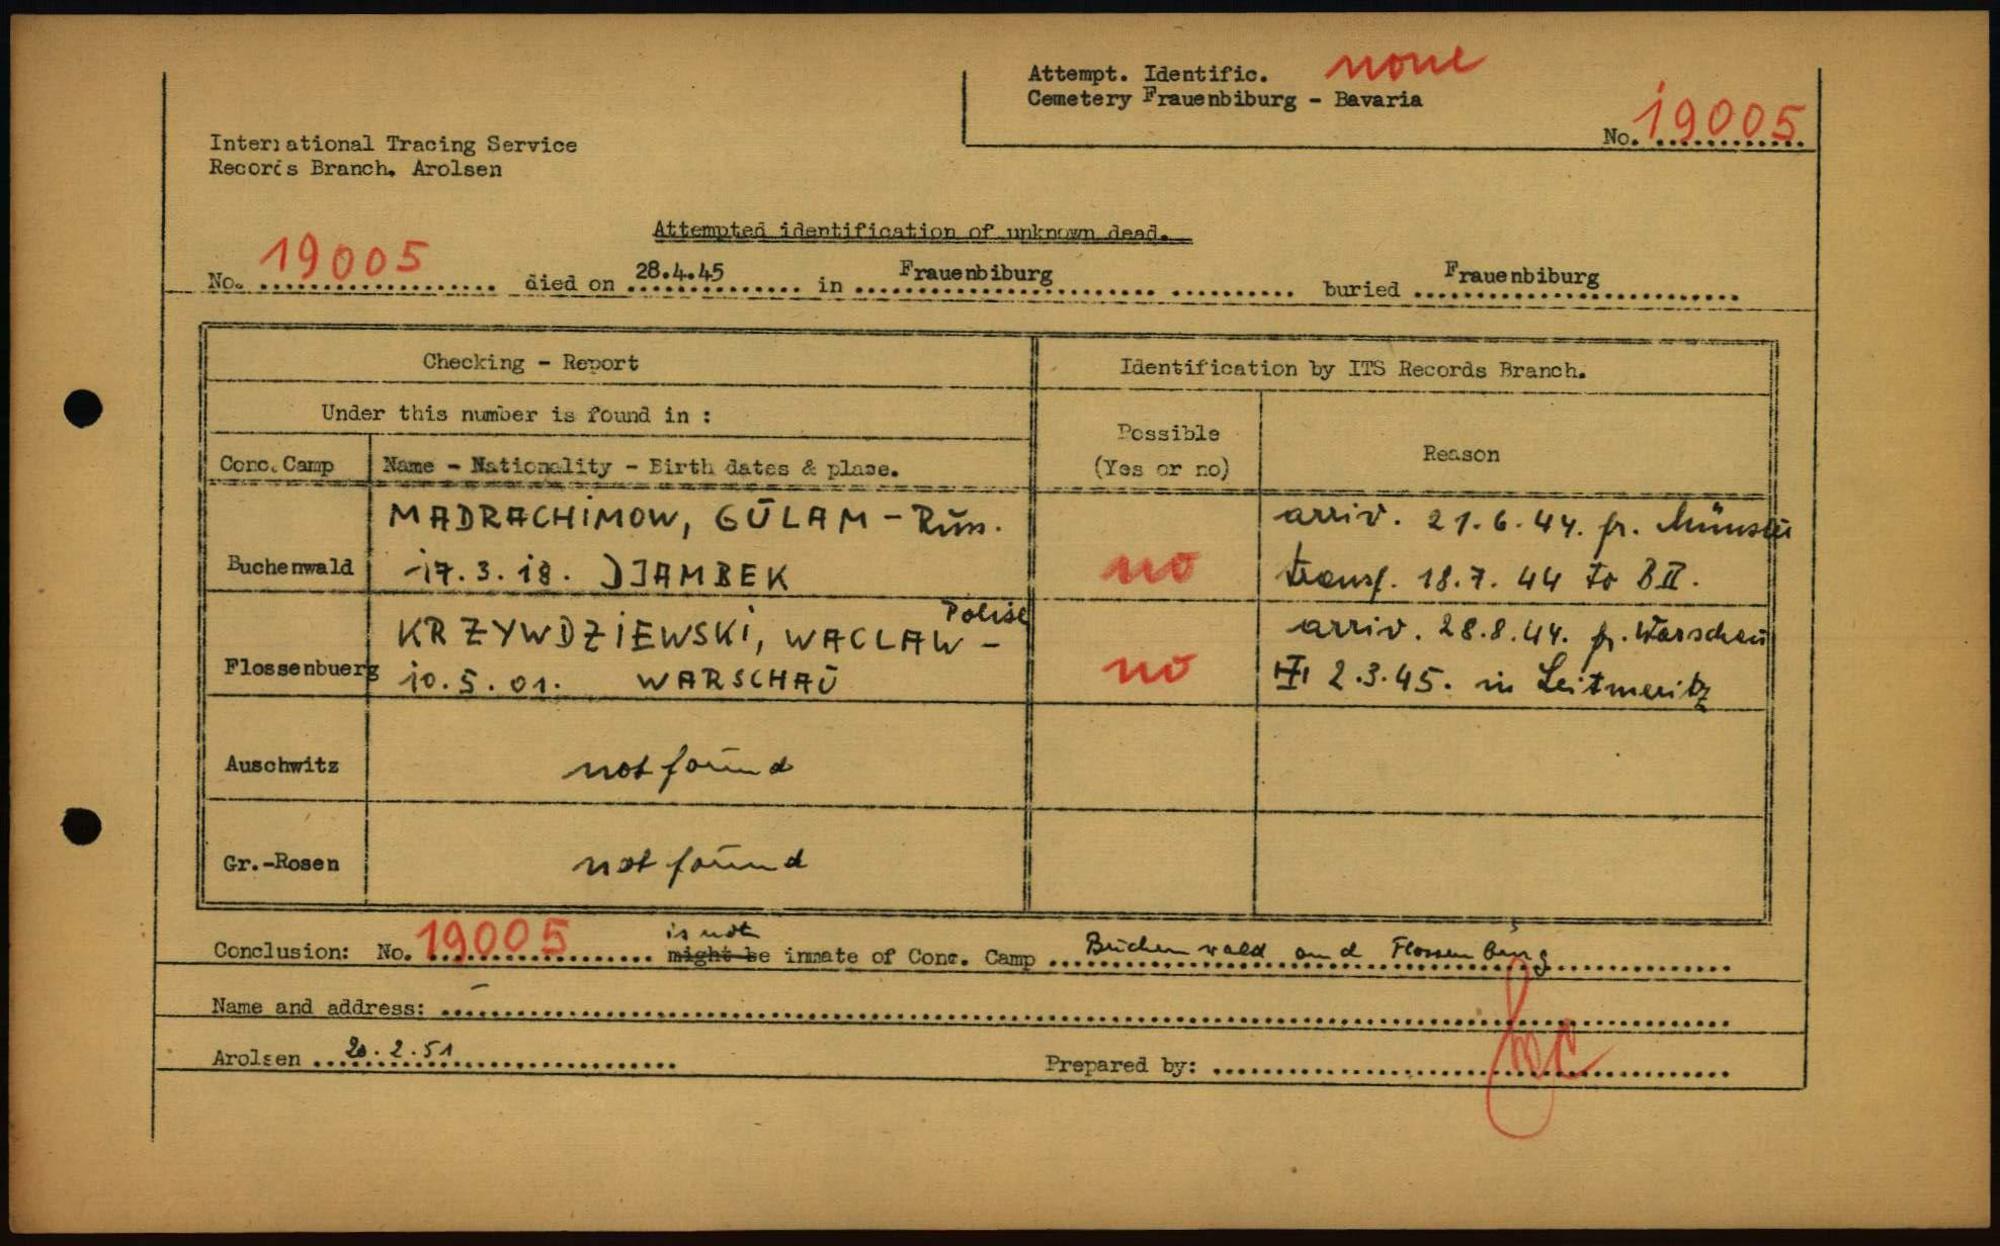 Attempt. Identific. none
Cemetery Frauenbiburg - Bavaria
No. 19005
International Tracing Service
Records Branch. Arolsen
Attempted identification of unknown dead.
No. 19005 died on 28.4.45 in Frauenbiburg buried Frauenbiburg
Checking - Report
Identification by ITS Records Branch.
Under this number is found in :
Conc. Camp
Name - Nationality - Birth dates & place.
Possible
(Yes or no)
Reason
Buchenwald
MADRACHIMOW, GŪLAM - Rūss.
17.3.18. DJAMBEK
no
arriv. 21.6.44. fr. Münster
transf. 18.7.44 to B II.
Flossenbuerg
KRZYWDZIEWSKI, WACLAW - Polish
10.5.01. WARSCHAŪ
no
arriv. 28.8.44. fr. Warschau
2.3.45. in Leitmeritz
Auschwitz
not foūnd
Gr.-Rosen
not foūnd
Conclusion: No. 19005 might be is not inmate of Conc. Camp Būchenwald and Flossenbūrg
Name and address: -
Arolsen 20.2.51
Prepared by: